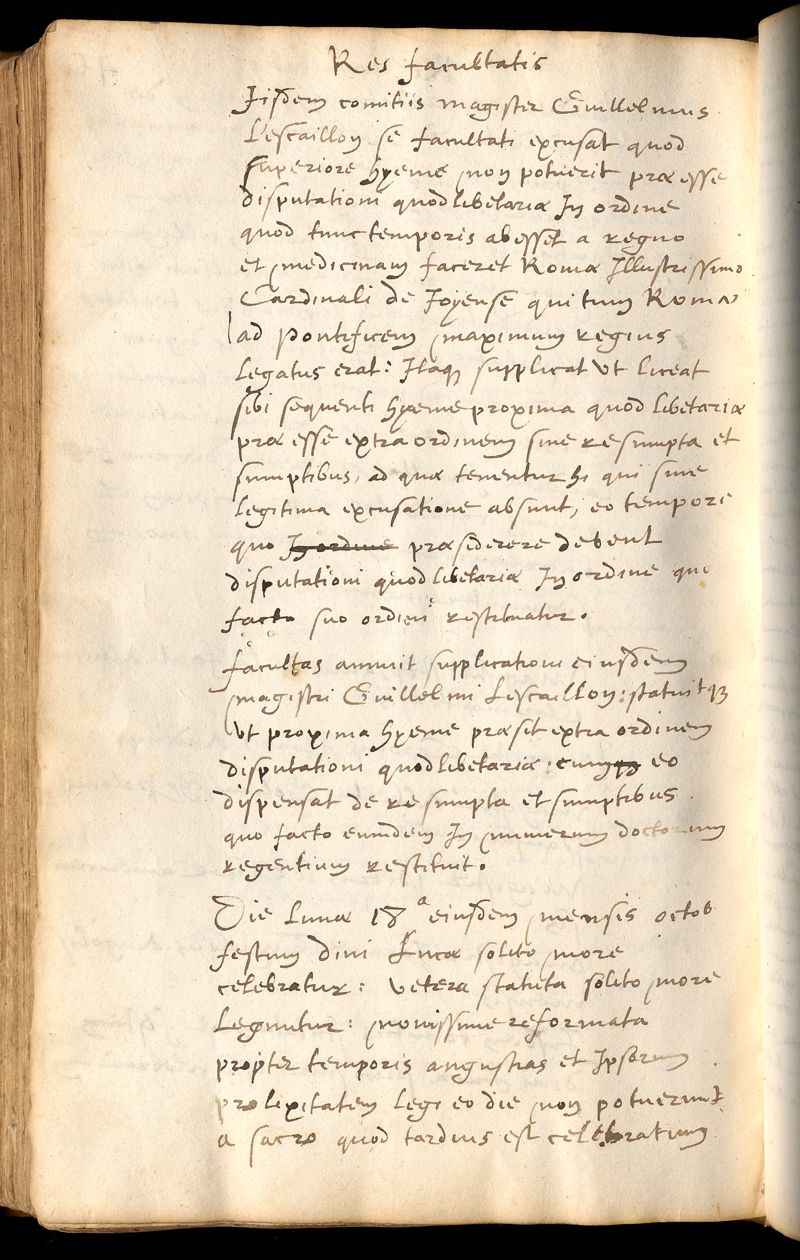 Res facultatis
Iisdem comitiis magister Guillelmus
Lescaillon se facultati excusat quod
superiore hyeme non potuerit præesse
disputationi quodlibetariæ In ordine
quod tunc temporis abesset a regno
et medicinam faceret Romæ Illustrissimo
Cardinali de Joyense qui tum Romæ
ad Pontificem maximum regius
legatus erat: Itaq supplicat ut liceat
sibi sequenti hyeme proxima quodlibetariæ
præesse extra ordinem sine resumpta et
sumptibus, ad quæ tenentur hi qui sine
legitima excusatione absunt, eo tempore
quo In ordine præsiderere debent
disputationi quodlibetariæ In ordine quo
facto suo ordini restituatur.
facultas annuit supplicationi eiusdem
magistri Guillelmi Lescaillon: statuitq
ut proxima hyeme præsit extra ordinem
disputationi quodlibetariæ: cumq eo
dispensat de resumpta et sumptibus.
quo facto eumdem In numerum doctorum
regentium restituit.
Die Lunæ 18a eiusdem mensis octob
festum divi Lucæ solito more
celebratur: vetera statuta solito more
leguntur: novissime reformata
propter temporis angustias et Ipsorum
prolixitatem legi eo die non potuerunt
a sacro quod tardius est celebratum